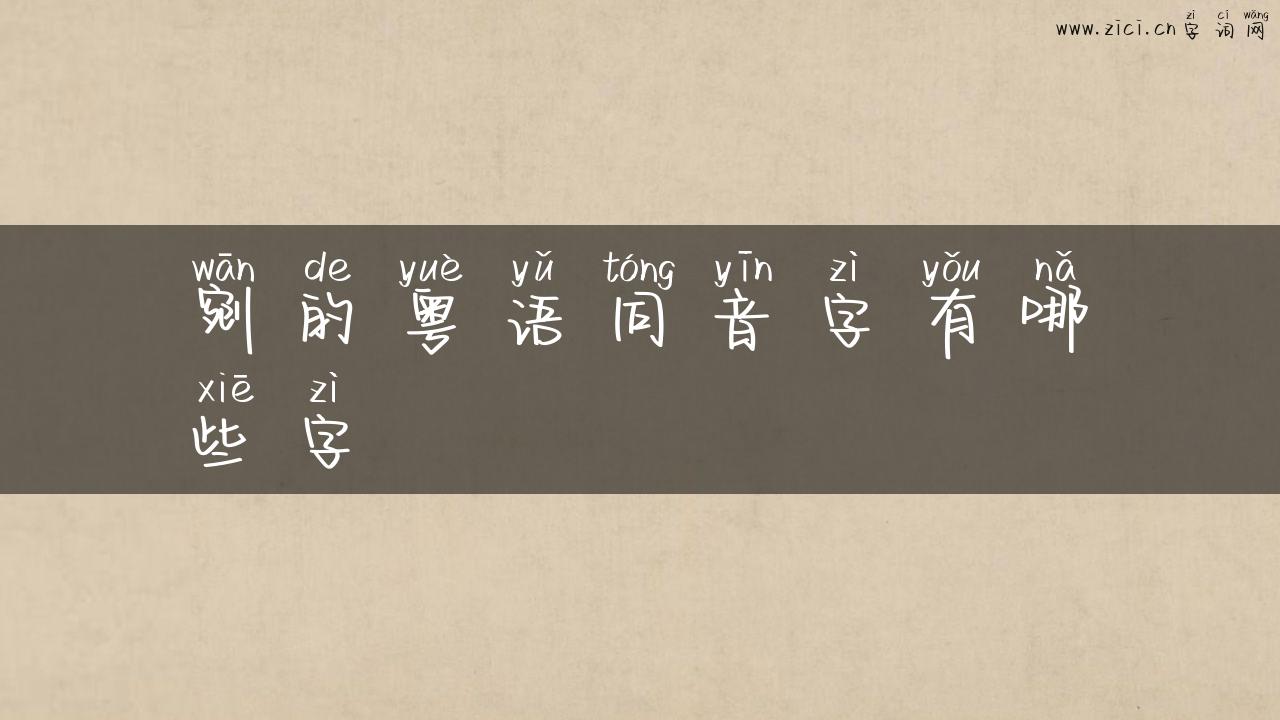 zì cí wǎng
www.zici.cn 字词网
wān de yuè yǔ tóng yīn zì yǒu nǎ
剜的粤语同音字有哪
xiē zì
些字